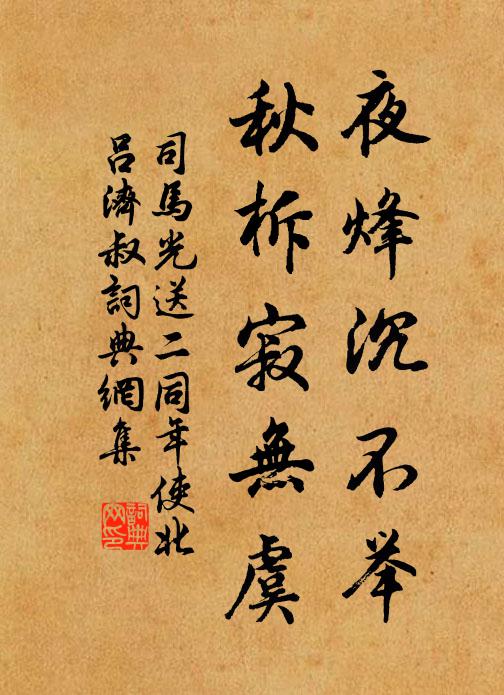 夜烽沉不举
秋柝寂無虞
司馬光送二同年使北
呂濟叔詞典網集
詞典
网印